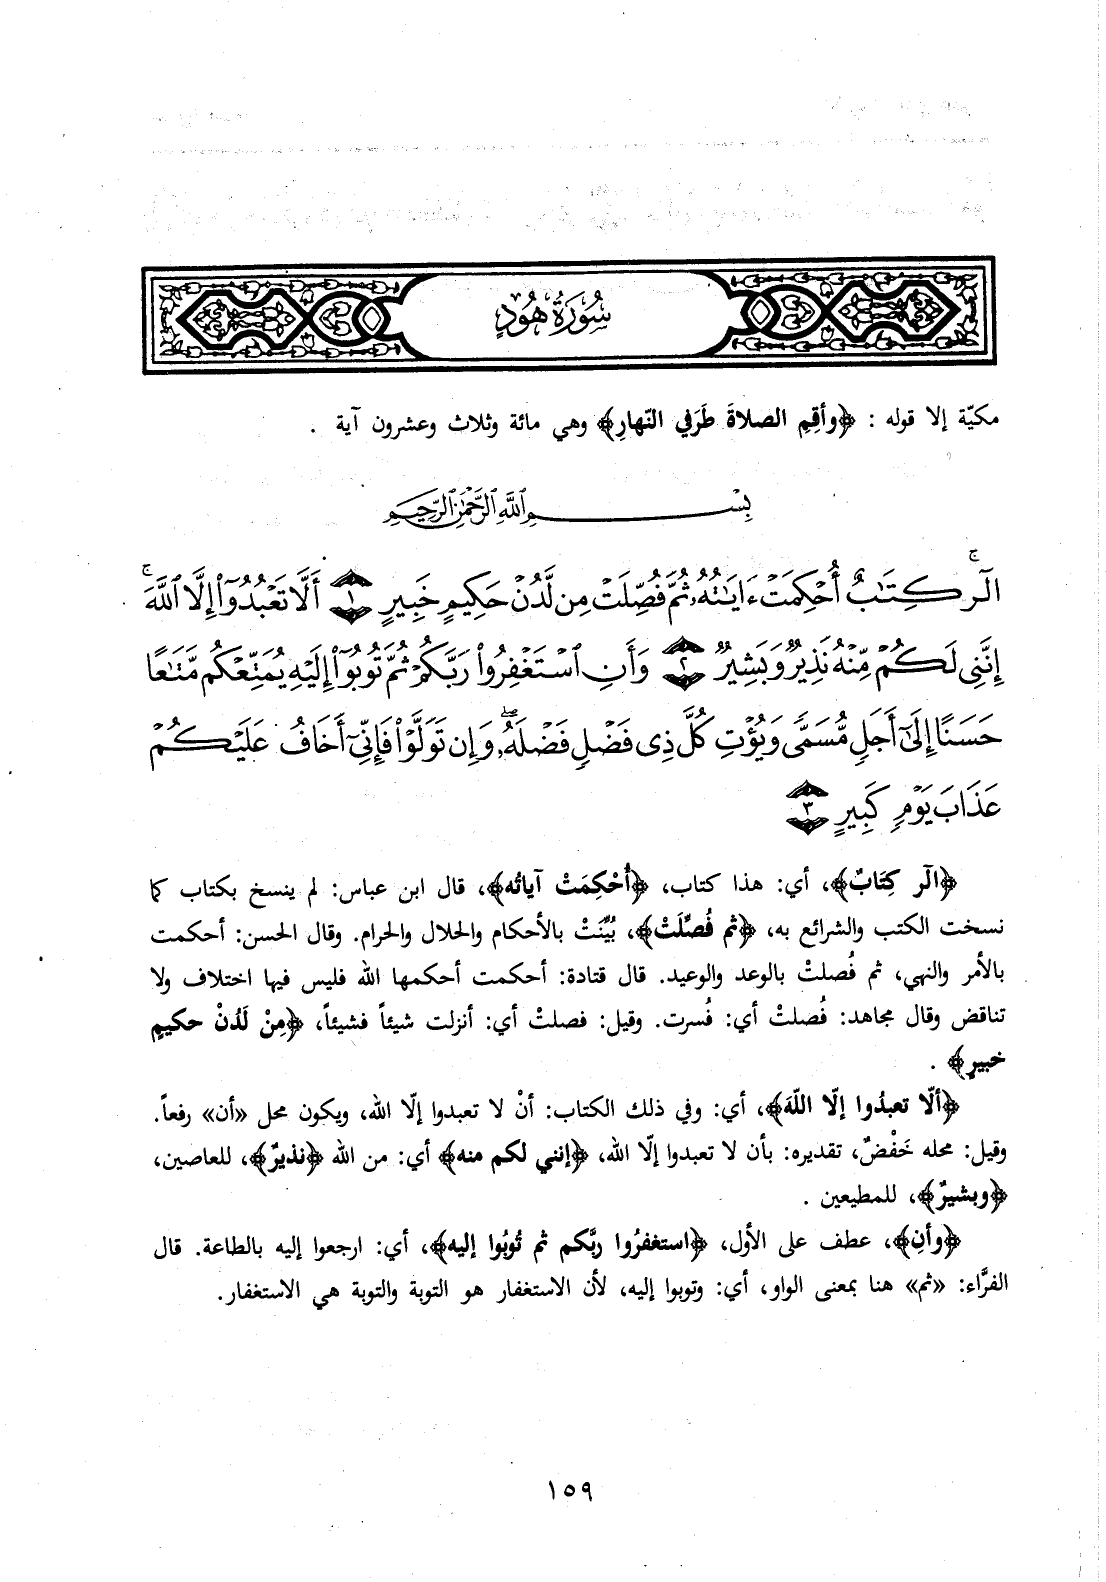 سُورَةُ هُودٍ
مكيّة إلا قوله : ﴿وأقِمِ الصلاةَ طَرَفي النّهارِ﴾ وهي مائة وثلاث وعشرون آية .
بِسْمِ ٱللَّهِ ٱلرَّحْمَٰنِ ٱلرَّحِيمِ
الٓرۚ كِتَٰبٌ أُحْكِمَتْ ءَايَٰتُهُۥ ثُمَّ فُصِّلَتْ مِن لَّدُنْ حَكِيمٍ خَبِيرٍ ١ أَلَّا تَعْبُدُوٓا۟ إِلَّا ٱللَّهَۚ
إِنَّنِى لَكُم مِّنْهُ نَذِيرٌ وَبَشِيرٌ ٢ وَأَنِ ٱسْتَغْفِرُوا۟ رَبَّكُمْ ثُمَّ تُوبُوٓا۟ إِلَيْهِ يُمَتِّعْكُم مَّتَٰعًا
حَسَنًا إِلَىٰٓ أَجَلٍ مُّسَمًّى وَيُؤْتِ كُلَّ ذِى فَضْلٍ فَضْلَهُۥۖ وَإِن تَوَلَّوْا۟ فَإِنِّىٓ أَخَافُ عَلَيْكُمْ
عَذَابَ يَوْمٍ كَبِيرٍ ٣
﴿الٓر كِتَابٌ﴾، أي: هذا كتاب، ﴿أُحْكِمَتْ آياتُه﴾، قال ابن عباس: لم ينسخ بكتاب كما
نسخت الكتب والشرائع به، ﴿ثم فُصِّلَتْ﴾، بُيِّنَتْ بالأحكام والحلال والحرام. وقال الحسن: أحكمت
بالأمر والنهي، ثم فُصلتْ بالوعد والوعيد. قال قتادة: أحكمت أحكمها الله فليس فيها اختلاف ولا
تناقض وقال مجاهد: فُصلتْ أي: فُسرت. وقيل: فصلتْ أي: أنزلت شيئاً فشيئاً، ﴿مِنْ لَدُنْ حكيمٍ
خبيرٍ﴾ .
﴿ألّا تعبدُوا إلّا اللّهَ﴾، أي: وفي ذلك الكتاب: أنْ لا تعبدوا إلّا الله، ويكون محل «أن» رفعاً.
وقيل: محله خَفْضٌ، تقديره: بأن لا تعبدوا إلّا الله، ﴿إنني لكم منه﴾ أي: من الله ﴿نذيرٌ﴾، للعاصين،
﴿وبشيرٌ﴾، للمطيعين .
﴿وأنِ﴾، عطف على الأول، ﴿استغفرُوا ربَّكم ثم تُوبُوا إليه﴾، أي: ارجعوا إليه بالطاعة. قال
الفرَّاء: «ثم» هنا بمعنى الواو، أي: وتوبوا إليه، لأن الاستغفار هو التوبة والتوبة هي الاستغفار.
١٥٩